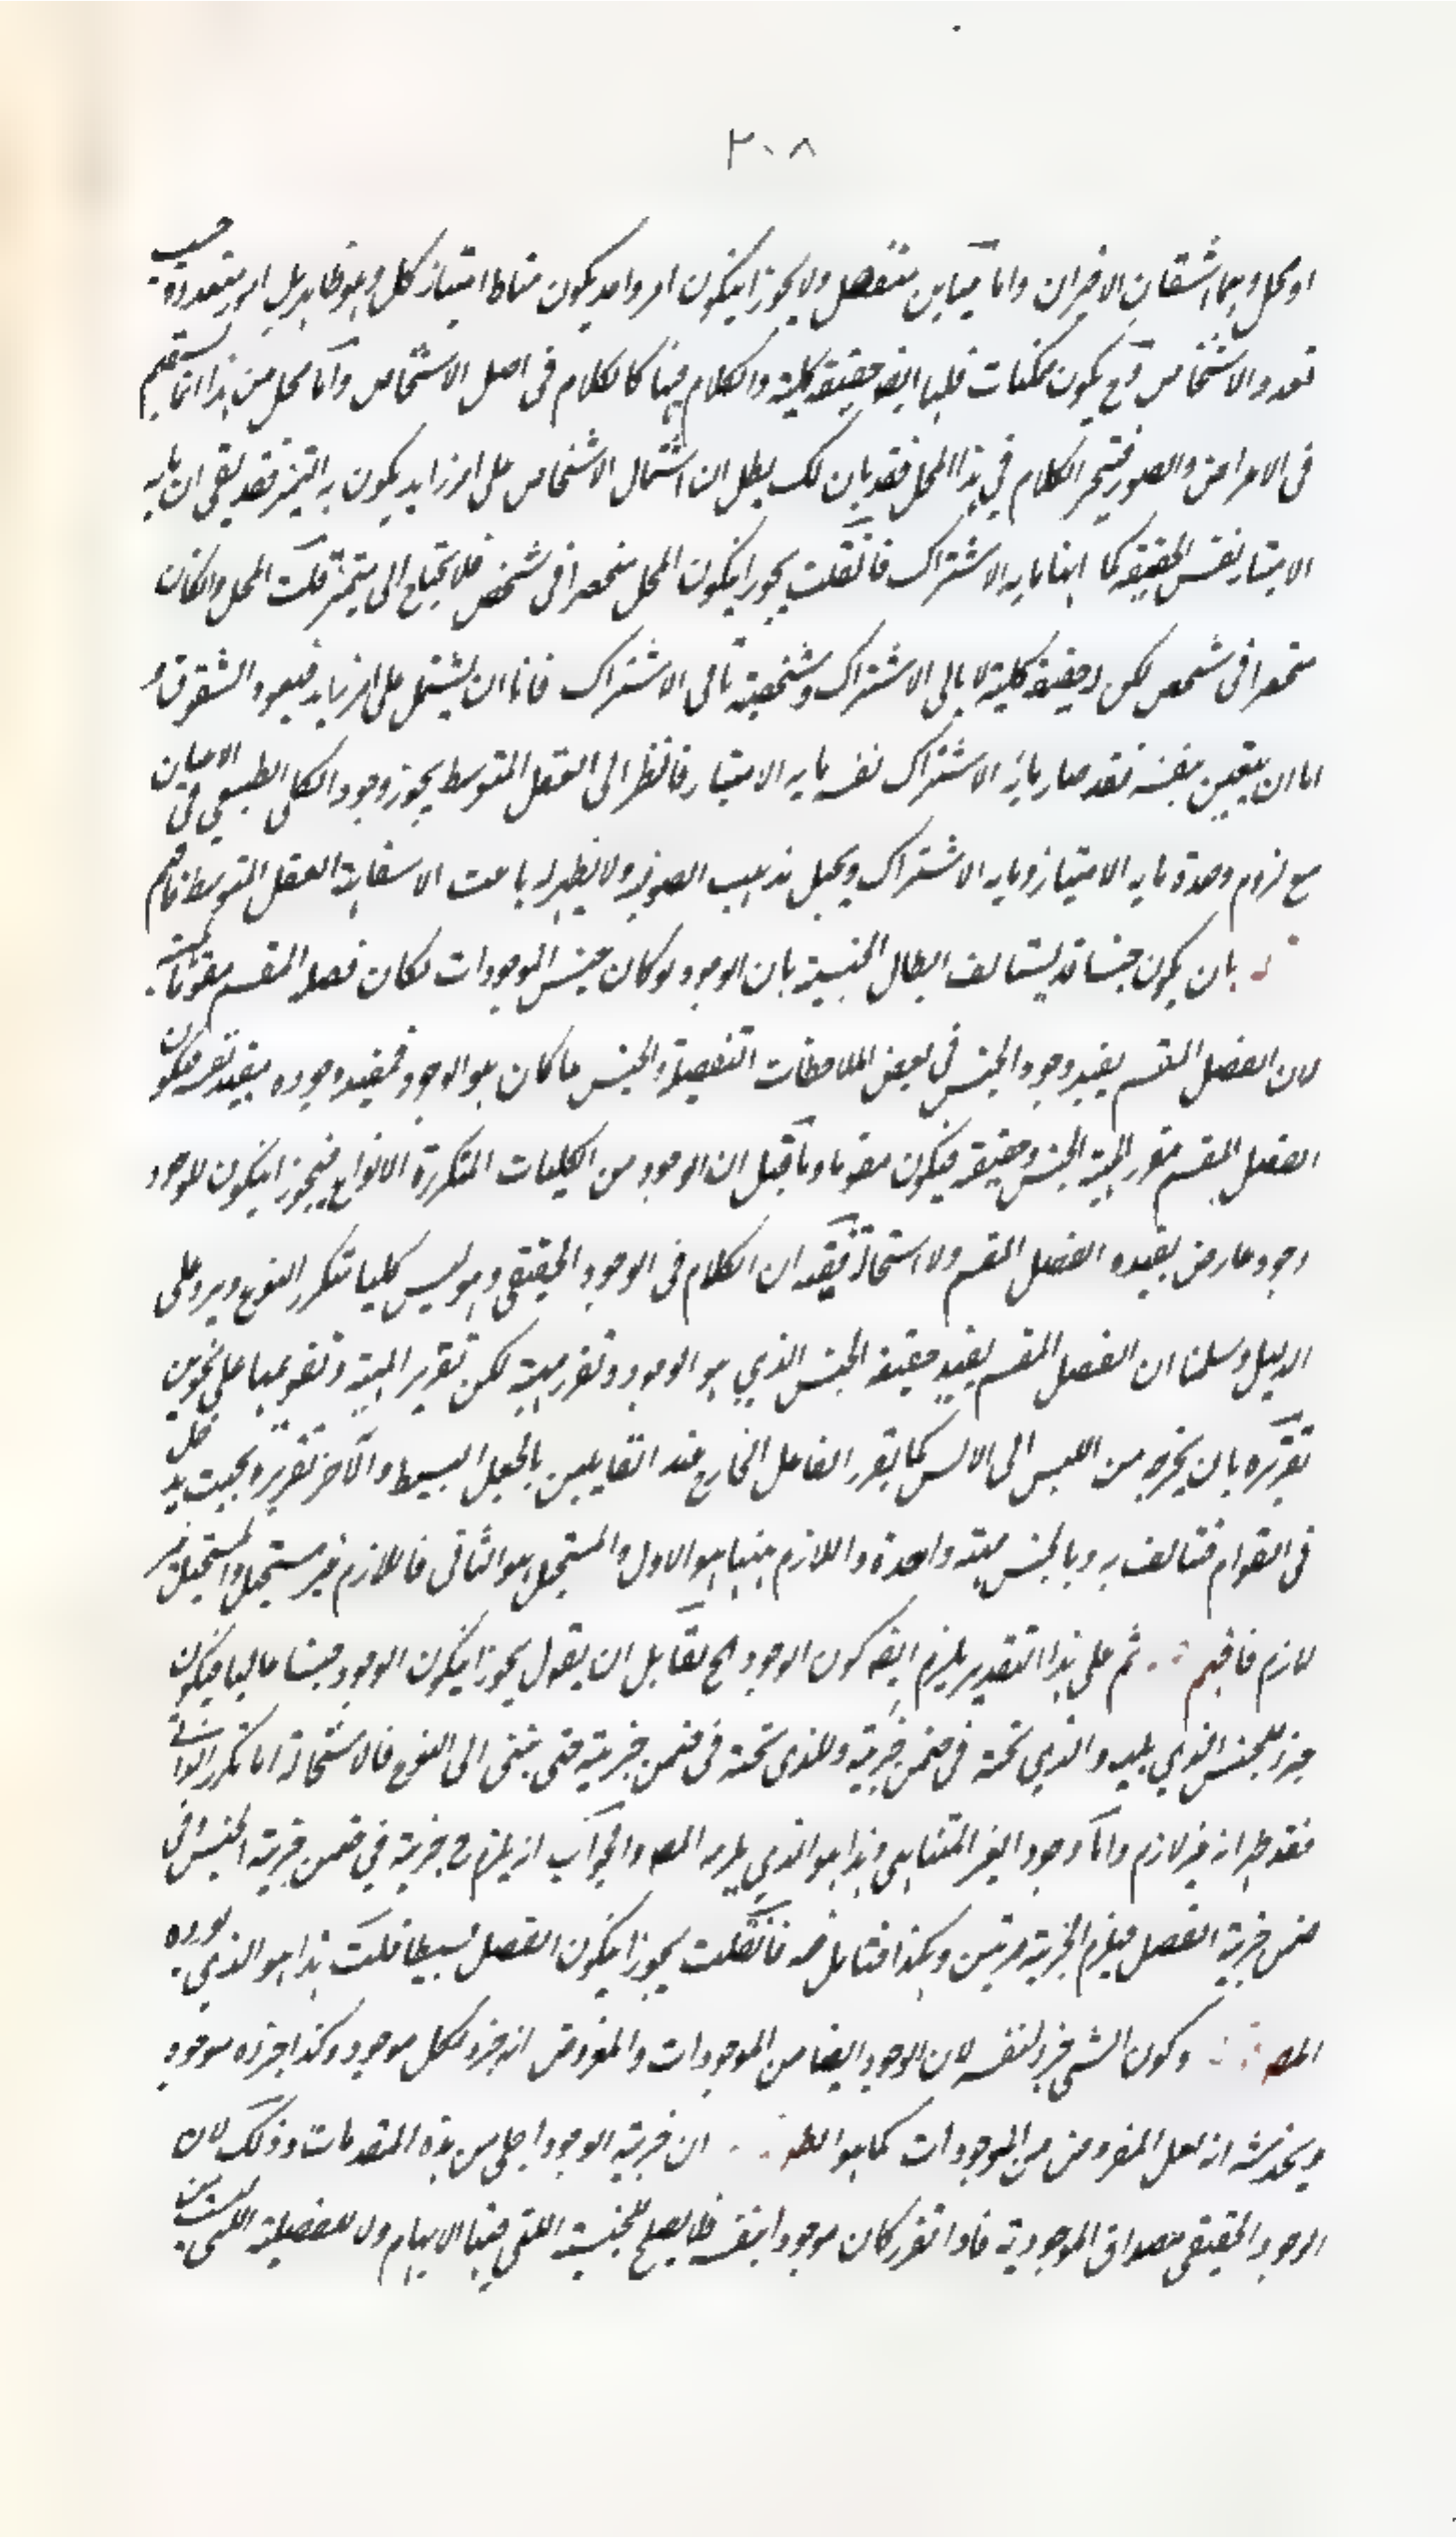 ٢٠٨
او محل وهما الشقان الاخيران واما مباين منفصل ولا يجوز ان يكون امر واحد يكون مناط امتياز كل وهو ظاهر بل امور متعددة حسب
تعدد الاشخاص وح يكون ممكنات فلها ايض حقيقة كلية والكلام فيها كالكلام فى اصل الاشخاص واما محل من هذا انما يستقيم
فى الاعراض والصور فينجر الكلام فى هذا المحل فقد بان لك بطلان اشتمال الاشخاص على امر زايد يكون به التميز فقد بقى ان ما به
الامتياز نفس الحقيقة كما انها ما به الاشتراك فان قلت يجوز ان يكون المحل منحصرا فى شخص فلا يحتاج الى متميز قلت المحل وان كان
منحصرا فى شخص لكن له حقيقة كلية لا يابى الاشتراك وشخصيته تابى الاشتراك فاما ان يشتمل على امر زايد فيعود الشقوق و
اما ان يتعين بنفسه فقد صار ما به الاشتراك نفس ما به الامتياز فانظر الى العقل المتوسط يجوز وجود الكلى الطبيعى فى الاعيان
مع لزوم وحدة ما به الامتياز وما به الاشتراك ويحيل مذهب الصوفية ولا يظهر له باعث الا سفاهة العقل المتوسط فافهم
بان يكون جنسا قد يستدل ابطال الجنسية بان الوجود لو كان جنس الموجودات لكان فصله المقسم مقوما
لان الفصل المقسم يفيد وجود الجنس فى بعض الملاحظات التفصيلية والجنس ما كان هو الوجود فمفيد وجوده يفيد تقرره فيكون
الفصل المقسم مقرر المهية الجنس وحقيقته فيكون مقوما وما قيل ان الوجود من الكليات المتكررة الانواع فيجوز ان يكون للوجود
وجود عارض يفيده الفصل المقسم ولا استحالة فيه ان الكلام فى الوجود الحقيقى وهو ليس كليا متكرر النوع ويرد على
الدليل وسلمنا ان الفصل المقسم يفيد حقيقة الجنس الذي هو الوجود وتقرر مهيته لكن تقرير المهية وتقويمها على نحوين
تقرره بان يخرجه من الليس الى الايس كما يقرر الفاعل الخارج عند القايلين بالجعل البسيط والآخر تقريره بحيث يدخل
فى القوام فتالف به وبالجنس مهية واحدة واللازم منهما هو الاول والمستحيل هو الثانى فاللازم غير مستحيل والمستحيل غير
لازم فافهم ثم على هذا التقدير يلزم ايضا كون الوجود الخ لقايل ان يقول يجوز ان يكون الوجود جنسا عاليا فيكون
جزء للجنس الذي يليه والذي تحته فى ضمن جزئية وللذى تحته فى ضمن جزئية حتى ينتهى الى النوع فالاستحالة اما تكرر الذاتى
فقد ظهر انه غير لازم واما وجود الغير المتناهى وهذا هو الذي يلزمه المصه والجواب انه يلزم ح جزئية فى ضمن جزئية الجنس وفى
ضمن جزئية الفصل فيلزم الجزئية مرتين وهكذا فتامل فيه فان قلت يجوز ان يكون الفصل بسيطا قلت هذا هو الذي يورده
المصه وكون الشى جزء لنفسه لان الوجود ايضا من الموجودات والمفروض انه جزء لكل موجود وكذا جزءه موجود
ويخدشه انه لعل المفروض من الموجودات كما هو الظ ان جزئية الوجود اجلى من هذه المقدمات وذلك لان
الوجود الحقيقى مصداق الموجودية فاذا تقرر كان موجودا بنفسه فلا يصلح للجنسية اللتى فيها الابهام ولا للفصلية اللتى ليست من